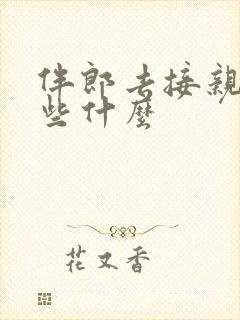 伴郎去接親
些什麼
花又香